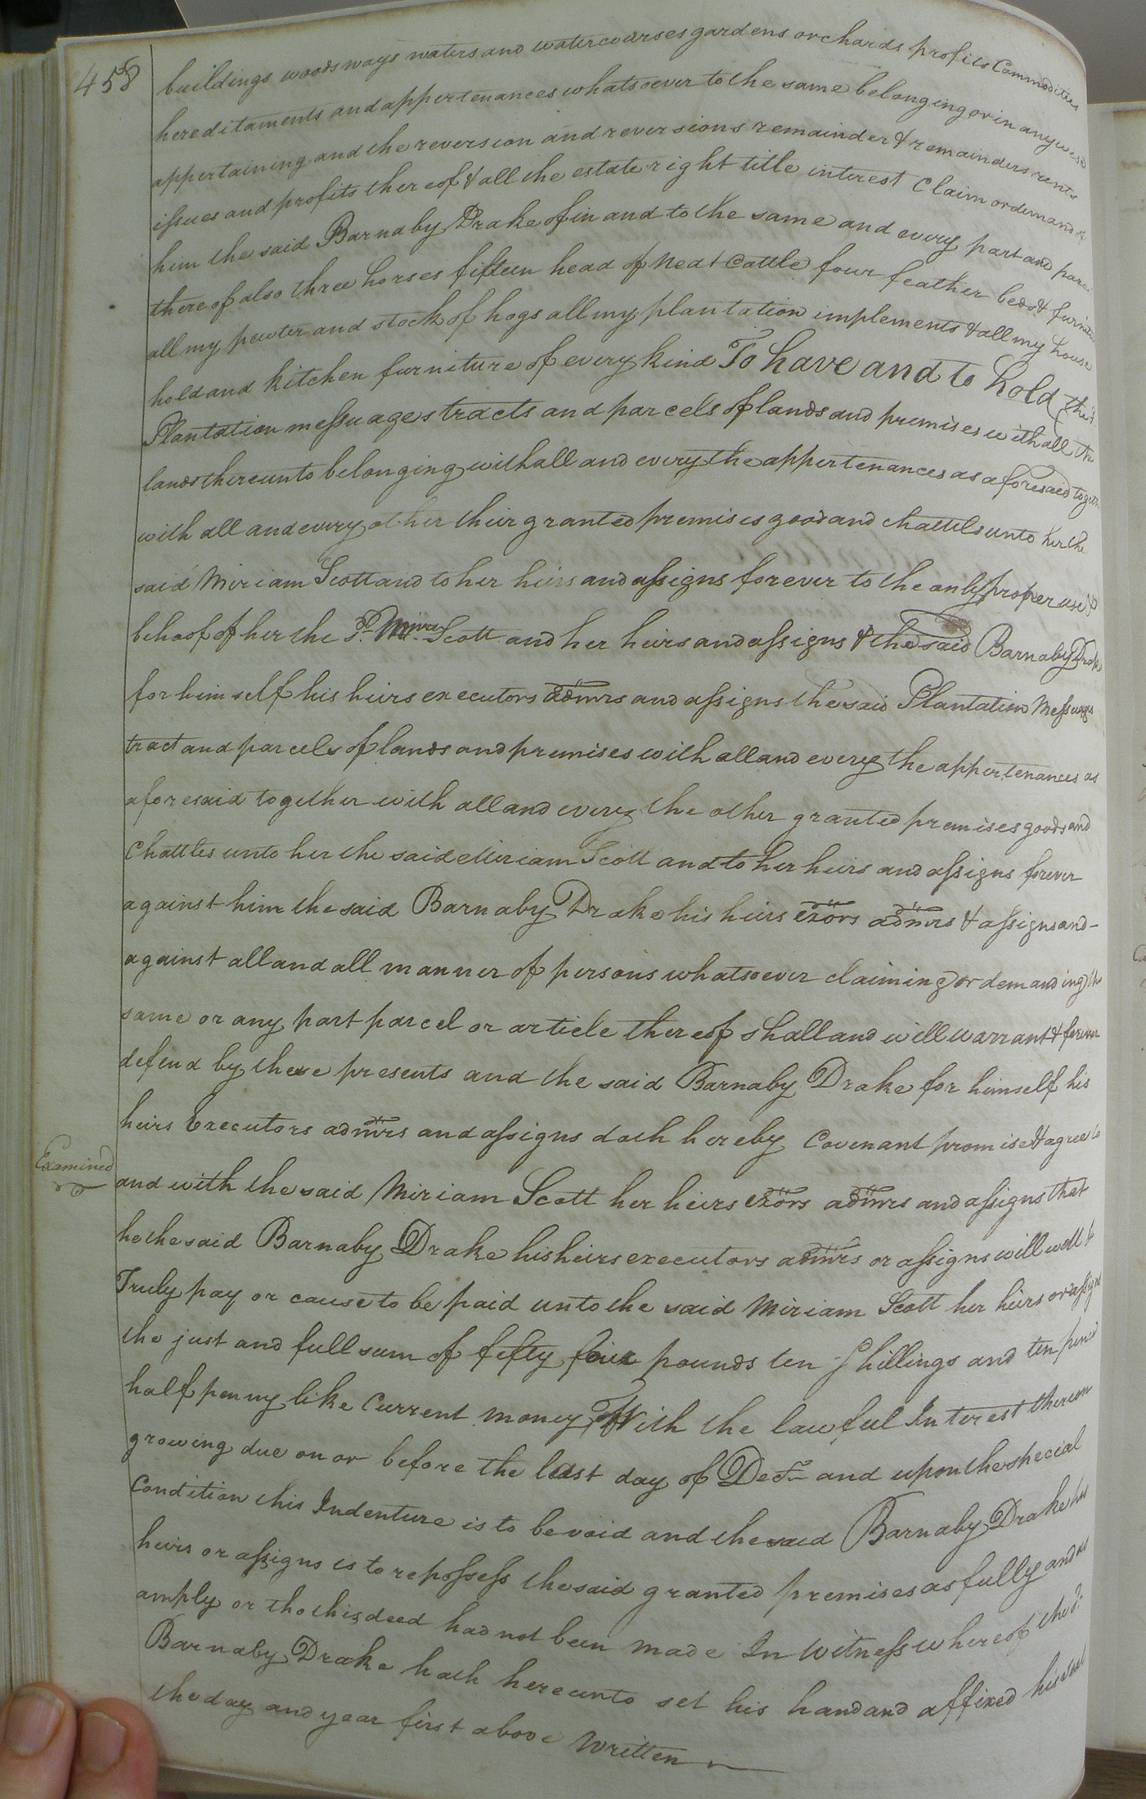 458
buildings woods ways waters and watercourses gardens orchards profits Commodities
hereditaments and appertenances whatsoever to the same belonging or in any wise
appertaining and the reversion and reversions remainder & remainders rents
issues and profits thereof & all the estate right title interest Claim or demand of
him the said Barnaby Drake of in and to the same and every part and parcel
thereof also three horses fifteen head of Neat Cattle four feather beds & furniture
all my pewter and stock of hogs all my plantation implements & all my house
hold and kitchen furniture of every kind To have and to hold this
Plantation messuages tracts and parcels of lands and premises with all the
lands thereunto belonging with all and every the appertenances as aforesaid together
with all and every other their granted premises good and chattels unto her the
said Miriam Scott and to her heirs and assigns forever to the only proper use &
behoof of her the Sd. Mirm Scott and her heirs and assigns & the said Barnaby Drake
for himself his heirs executors admrs and assigns the said Plantation Messuages
tract and parcels of lands and premises with all and every the appertenances as
aforesaid together with all and every the other granted premises goods and
Chattles unto her the said Miriam Scott and to her heirs and assigns forever
against him the said Barnaby Drake his heirs exors admrs & assigns and-
against all and all manner of persons whatsoever claiming or demanding the
same or any part parcel or article thereof shall and will warrant & forever
defend by these presents and the said Barnaby Drake for himself his
heirs Executors admrs and assigns doth hereby Covenant promise & agree to
Examined
and with the said Miriam Scott her heirs exors admrs and assigns that
he the said Barnaby Drake his heirs executors admrs or assigns will well &
Truly pay or cause to be paid unto the said Miriam Scott her heirs or assigns
the just and full sum of fifty four pounds ten Shillings and ten pence
half penny like Current money With the lawful Interest thereon
growing due on or before the last day of Decr and upon the special
Condition this Indenture is to be void and the said Barnaby Drake his
heirs or assigns is to repossess the said granted premises as fully and as
amply or tho this deed had not been made In Witness whereof the sd.
Barnaby Drake hath hereunto set his hand and affixed his seal
the day and year first above Written